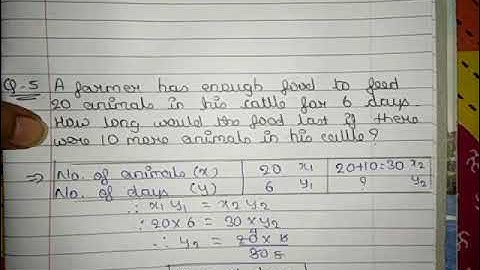 Q-5 A farmer has enough food to feed
20 animals in his cattle for 6 days.
How long would the food last if there
were 10 more animals in his cattle?
⇒ No. of animals (x) 20 x₁ 20+10=30 x₂
No. of days (y) 6 y₁ ? y₂
∴ x₁ y₁ = x₂ y₂
∴ 20×6 = 30×y₂
∴ y₂ = 20 × 6
30